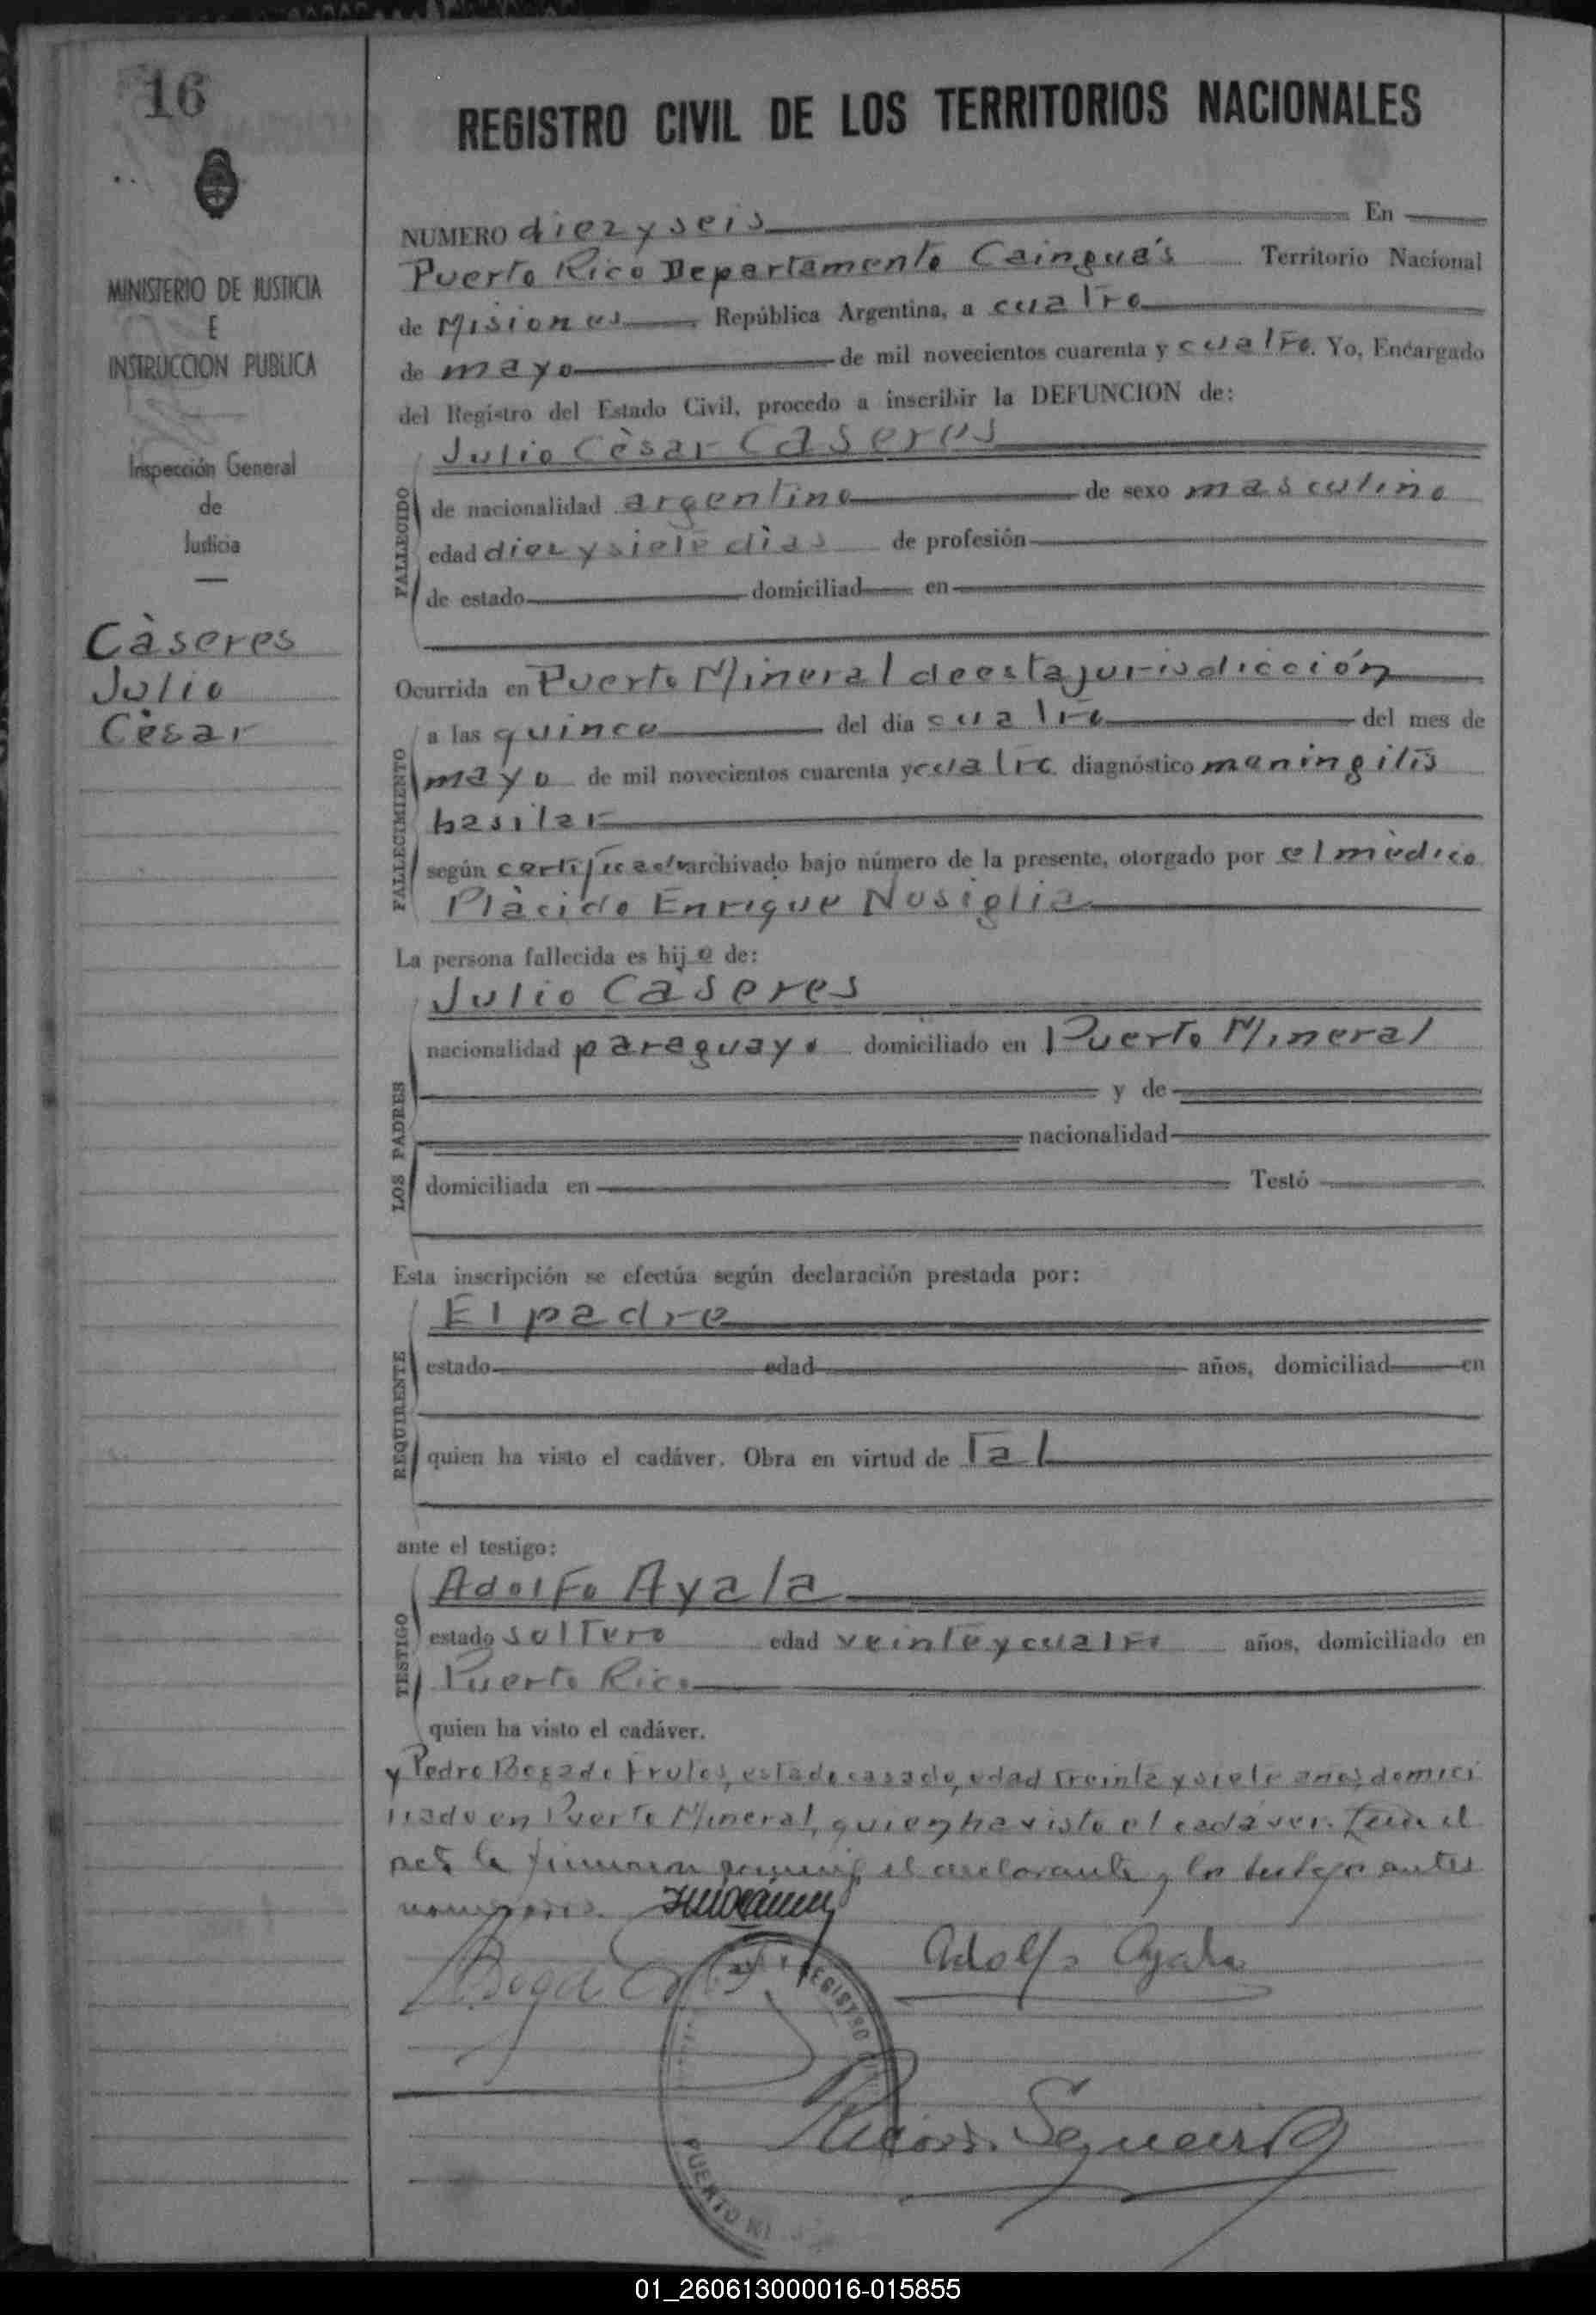 16
REGISTRO CIVIL DE LOS TERRITORIOS NACIONALES
MINISTERIO DE JUSTICIA
E
INSTRUCCION PUBLICA
Inspección General
de
Justicia
Càseres
Julio
Cèsar
NUMERO diez y seis En
Puerto Rico Departamento Cainguá's Territorio Nacional
de Misiones República Argentina, a cuatro
de mayo de mil novecientos cuarenta y cuatro. Yo, Encargado
del Registro del Estado Civil, procedo a inscribir la DEFUNCION de:
Julio Cèsar Caseres
FALLECIDO
de nacionalidad argentina de sexo masculino
edad diez y siete dìas de profesión
de estado domiciliad en
Ocurrida en Puerto Mineral de esta jurisdicción
FALLECIMIENTO
a las quince del día cuatro del mes de
mayo de mil novecientos cuarenta y cuatro diagnóstico meningitis
basilar
según certificado archivado bajo número de la presente, otorgado por el mèdico
Plàcido Enrique Nosiglia
La persona fallecida es hijo de:
Julio Càseres
LOS PADRES
nacionalidad paraguayo domiciliado en Puerto Mineral
y de
nacionalidad
domiciliada en Testó
Esta inscripción se efectúa según declaración prestada por:
El padre
REQUIRENTE
estado edad años, domiciliad en
quien ha visto el cadáver. Obra en virtud de Tal
ante el testigo:
Adolfo Ayala
TESTIGO
estado soltero edad veinte y cuatro años, domiciliado en
Puerto Rico
quien ha visto el cadáver.
y Pedro Bogado Frutos, estado casado, edad treinta y siete años, domici
liado en Puerto Mineral, quien ha visto el cadáver. Leida el
acta la firmaron conmigo el declarante y los testigos antes
Adolfo Ayala
REGISTRO
PUERTO RI
Sequeira
01_260613000016-015855